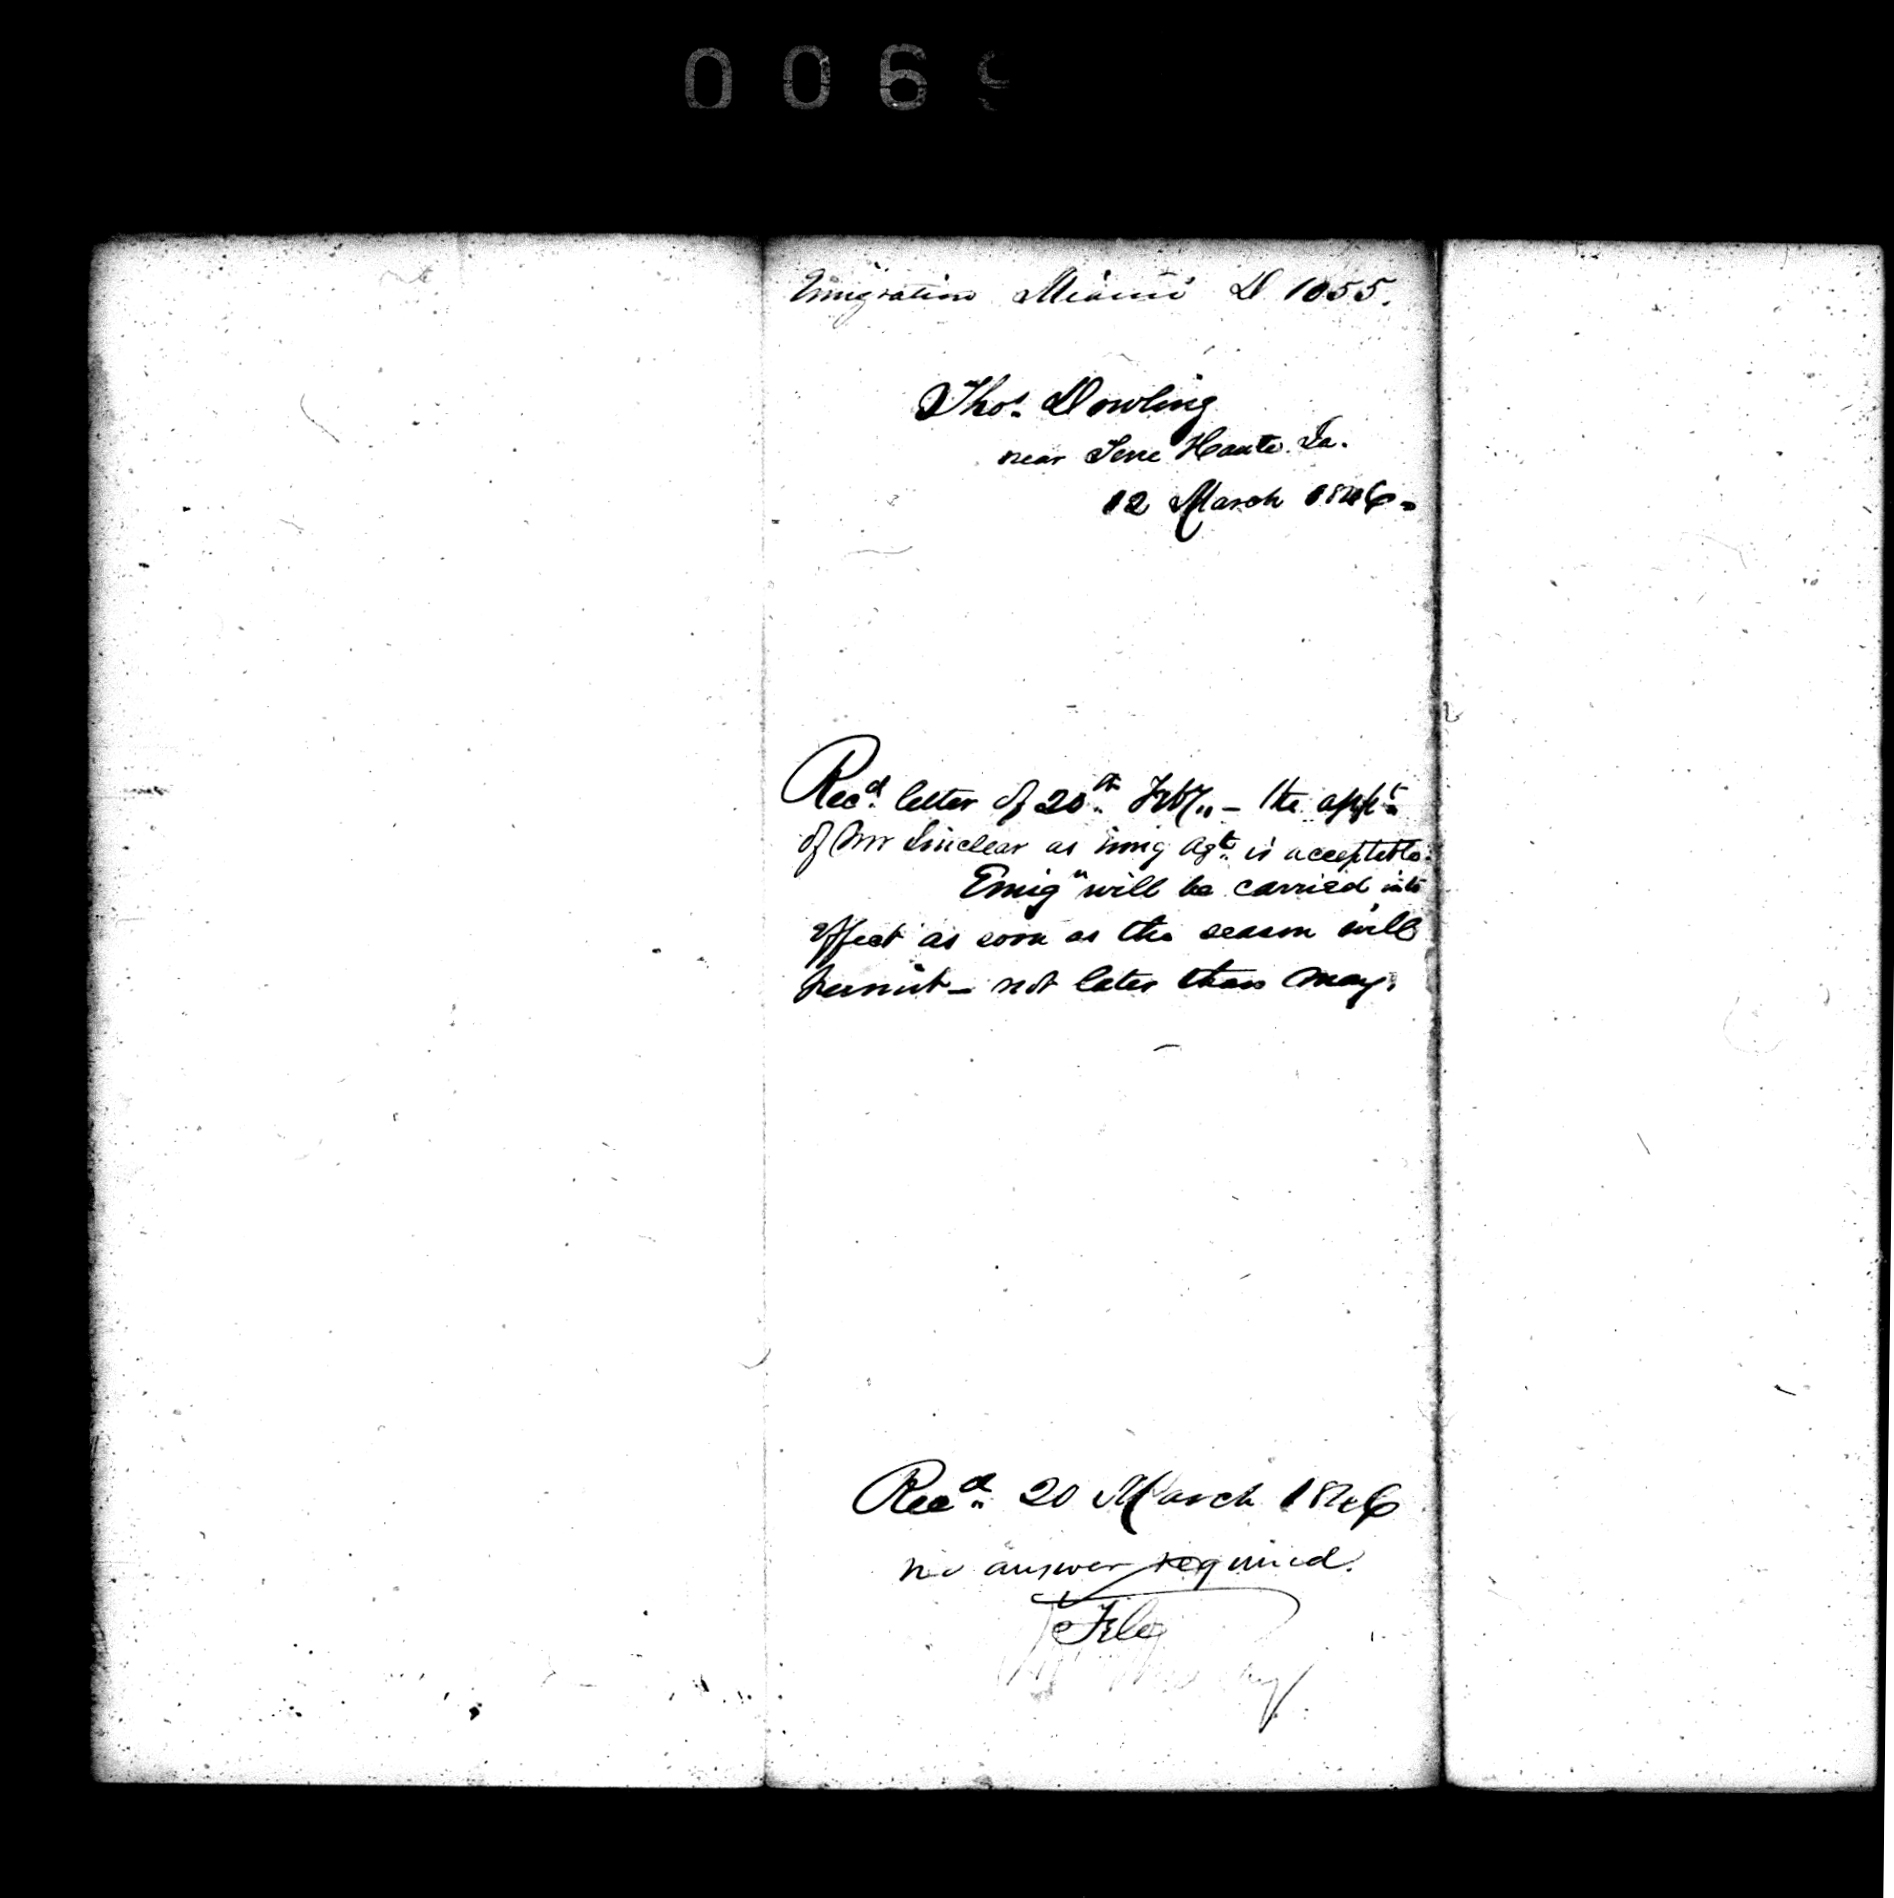 0069
Emigration Miami D 1055.
Thos. Dowling
near Terre Haute Ia.
12 March 1846.
Recd. letter of 20th. Feby. - the appt.
of Mr Sinclear as Emig Agt. is acceptable.
Emign will be carried into
effect as soon as the season will
permit - not later than May.
Recd. 20 March 1846
no answer required.
File